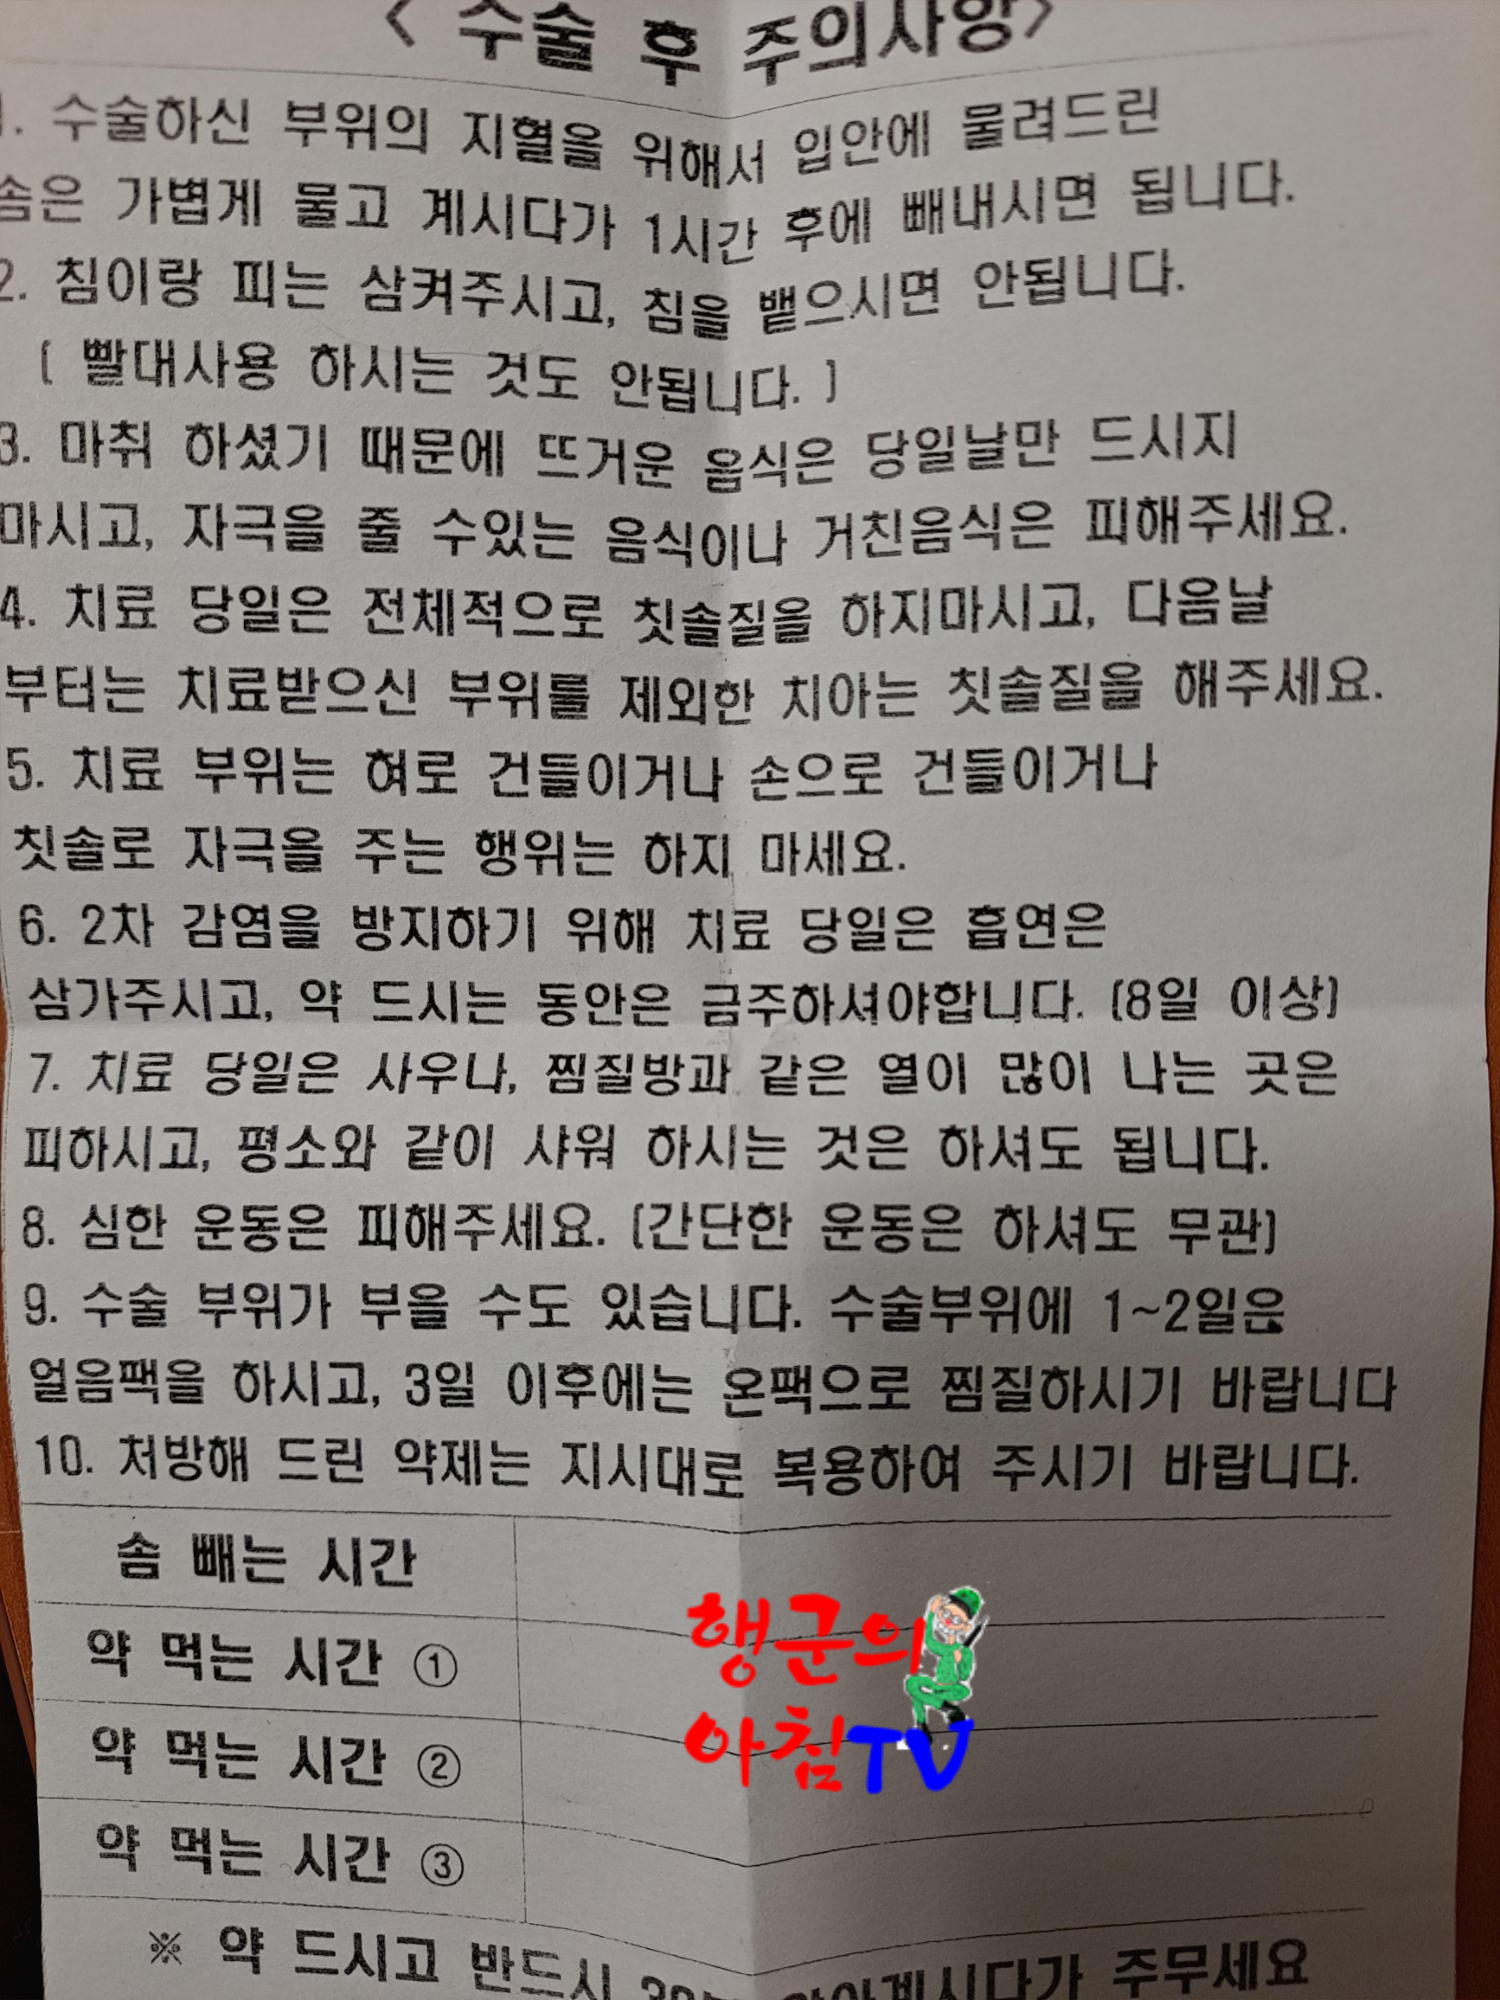 < 수술 후 주의사항>
1. 수술하신 부위의 지혈을 위해서 입안에 물려드린
솜은 가볍게 물고 계시다가 1시간 후에 빼내시면 됩니다.
2. 침이랑 피는 삼켜주시고, 침을 뱉으시면 안됩니다.
( 빨대사용 하시는 것도 안됩니다. )
3. 마취 하셨기 때문에 뜨거운 음식은 당일날만 드시지
마시고, 자극을 줄 수있는 음식이나 거친음식은 피해주세요.
4. 치료 당일은 전체적으로 칫솔질을 하지마시고, 다음날
부터는 치료받으신 부위를 제외한 치아는 칫솔질을 해주세요.
5. 치료 부위는 혀로 건들이거나 손으로 건들이거나
칫솔로 자극을 주는 행위는 하지 마세요.
6. 2차 감염을 방지하기 위해 치료 당일은 흡연은
삼가주시고, 약 드시는 동안은 금주하셔야합니다. (8일 이상)
7. 치료 당일은 사우나, 찜질방과 같은 열이 많이 나는 곳은
피하시고, 평소와 같이 샤워 하시는 것은 하셔도 됩니다.
8. 심한 운동은 피해주세요. (간단한 운동은 하셔도 무관)
9. 수술 부위가 부을 수도 있습니다. 수술부위에 1~2일은
얼음팩을 하시고, 3일 이후에는 온팩으로 찜질하시기 바랍니다
10. 처방해 드린 약제는 지시대로 복용하여 주시기 바랍니다.
솜 빼는 시간
약 먹는 시간 ①
약 먹는 시간 ②
약 먹는 시간 ③
행군의
아침TV
※ 약 드시고 반드시 주무세요